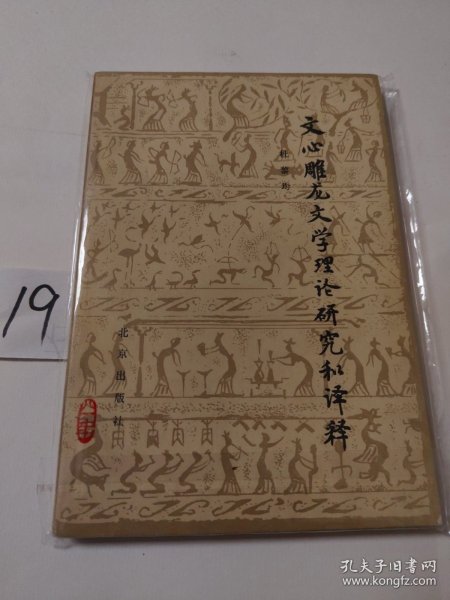 文心雕龙文学理论研究和译释
杜黎均
北京出版社
19
孔夫子旧书网
www.kongfz.com